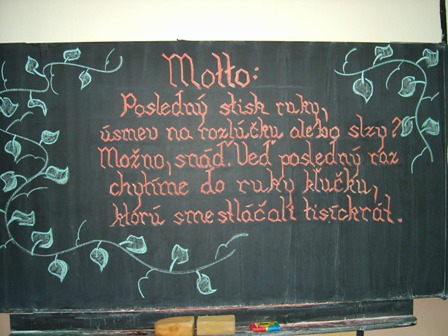 Motto:
Posledný stisk ruky,
úsmev na rozlúčku, alebo slzy?
Možno, snáď. Veď posledný raz
chytíme do ruky kľučku,
ktorú sme stláčali tisíckrát.